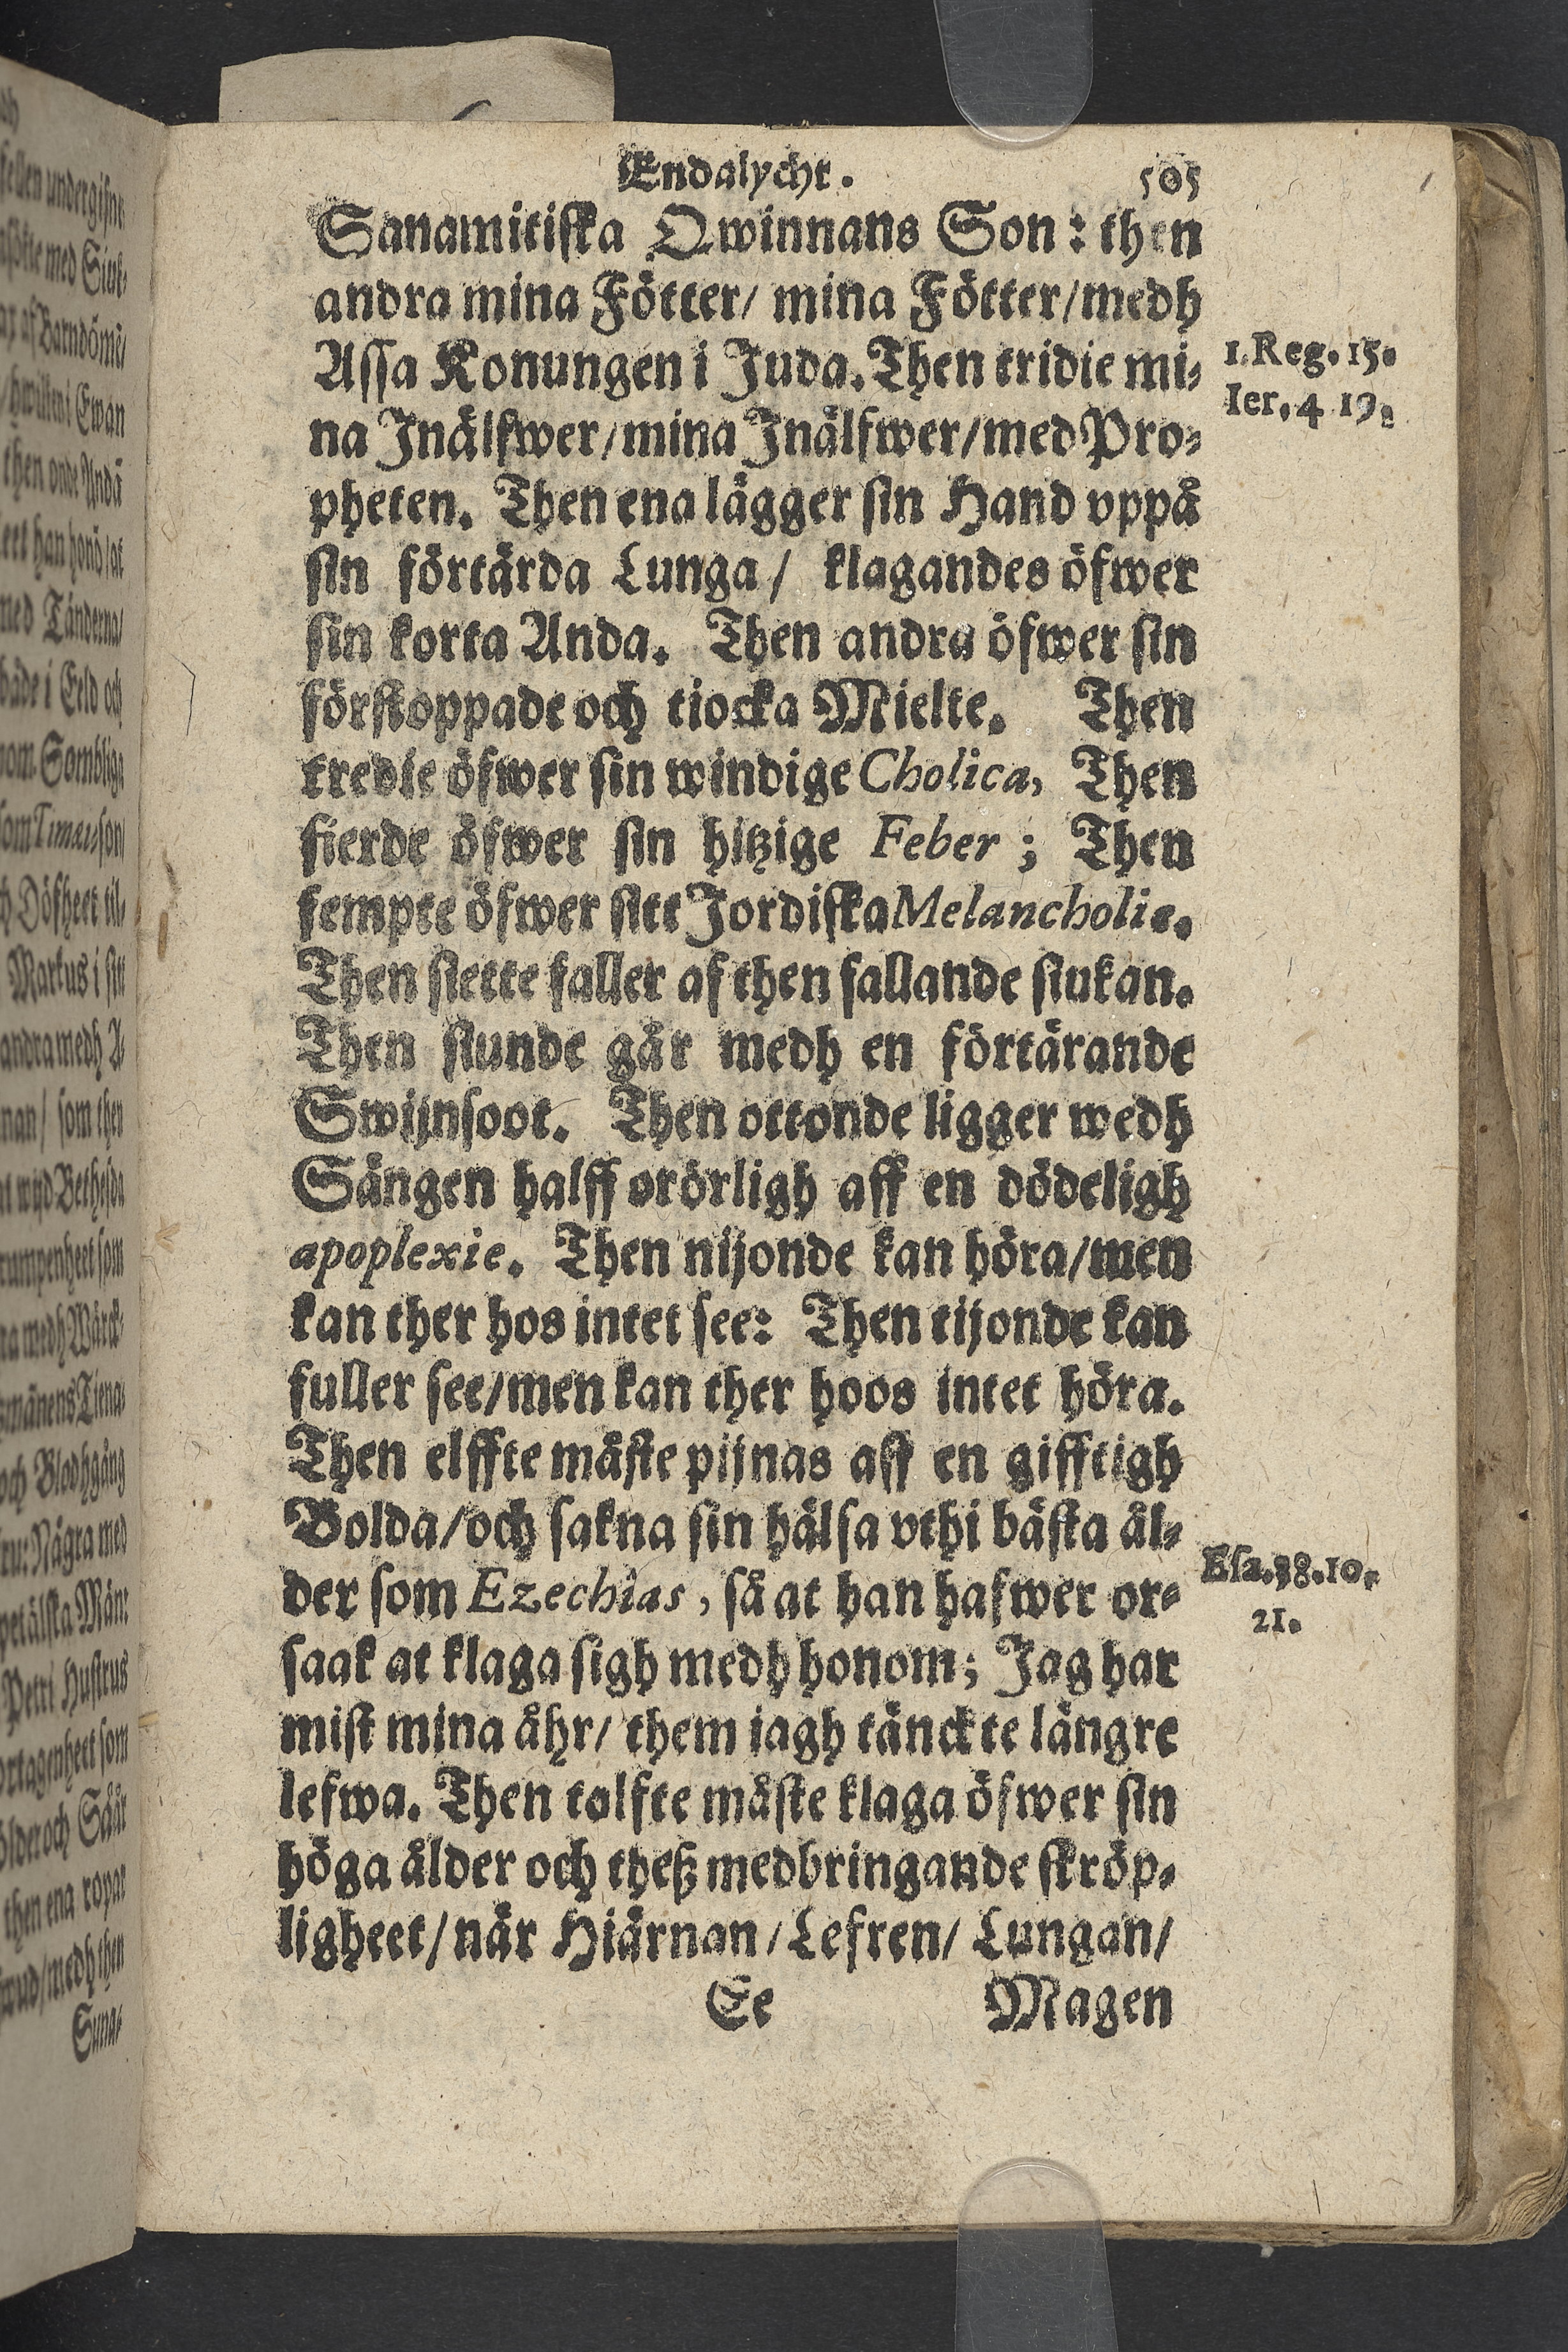 Endalycht. 505
Sanamitiska Qwinnans Son: then
andra mina Fötter/ mina Fötter/medh
Assa Konungen i Juda. Then tridie mi-
1. Reg. 15.
Ier. 4 19.
na Inälfwer/mina Inälfwer/med Pro-
pheten. Then ena lägger sin Hand vppå
sin förtärda Lunga/ klagandes öfwer
sin korta Anda. Then andra öfwer sin
förstoppade och tiocka Mielte. Then
tredie öfwer sin windige Cholica, Then
fierde öfwer sin hitzige Feber; Then
fempte öfwer sitt Jordiska Melancholie.
Then siette faller af then fallande siukan.
Then siunde går medh en förtärande
Swijnsoot. Then ottonde ligger wedh
Sängen halff orörligh aff en dödeligh
apoplexie. Then nijonde kan höra/men
kan ther hos intet see: Then tijonde kan
fuller see/men kan ther hoos intet höra.
Then elffte måste pijnas aff en gifftigh
Bolda/och sakna sin hälsa vthi bästa ål-
der som Ezechias, så at han hafwer or-
Esa. 38. 10.
21.
saak at klaga sigh medh honom; Jag har
mist mina åhr/ them iagh tänckte längre
lefwa. Then tolfte måste klaga öfwer sin
höga ålder och theß medbringande skröp-
ligheet/når Hiärnan/Lefren/ Lungan/
Ee Magen